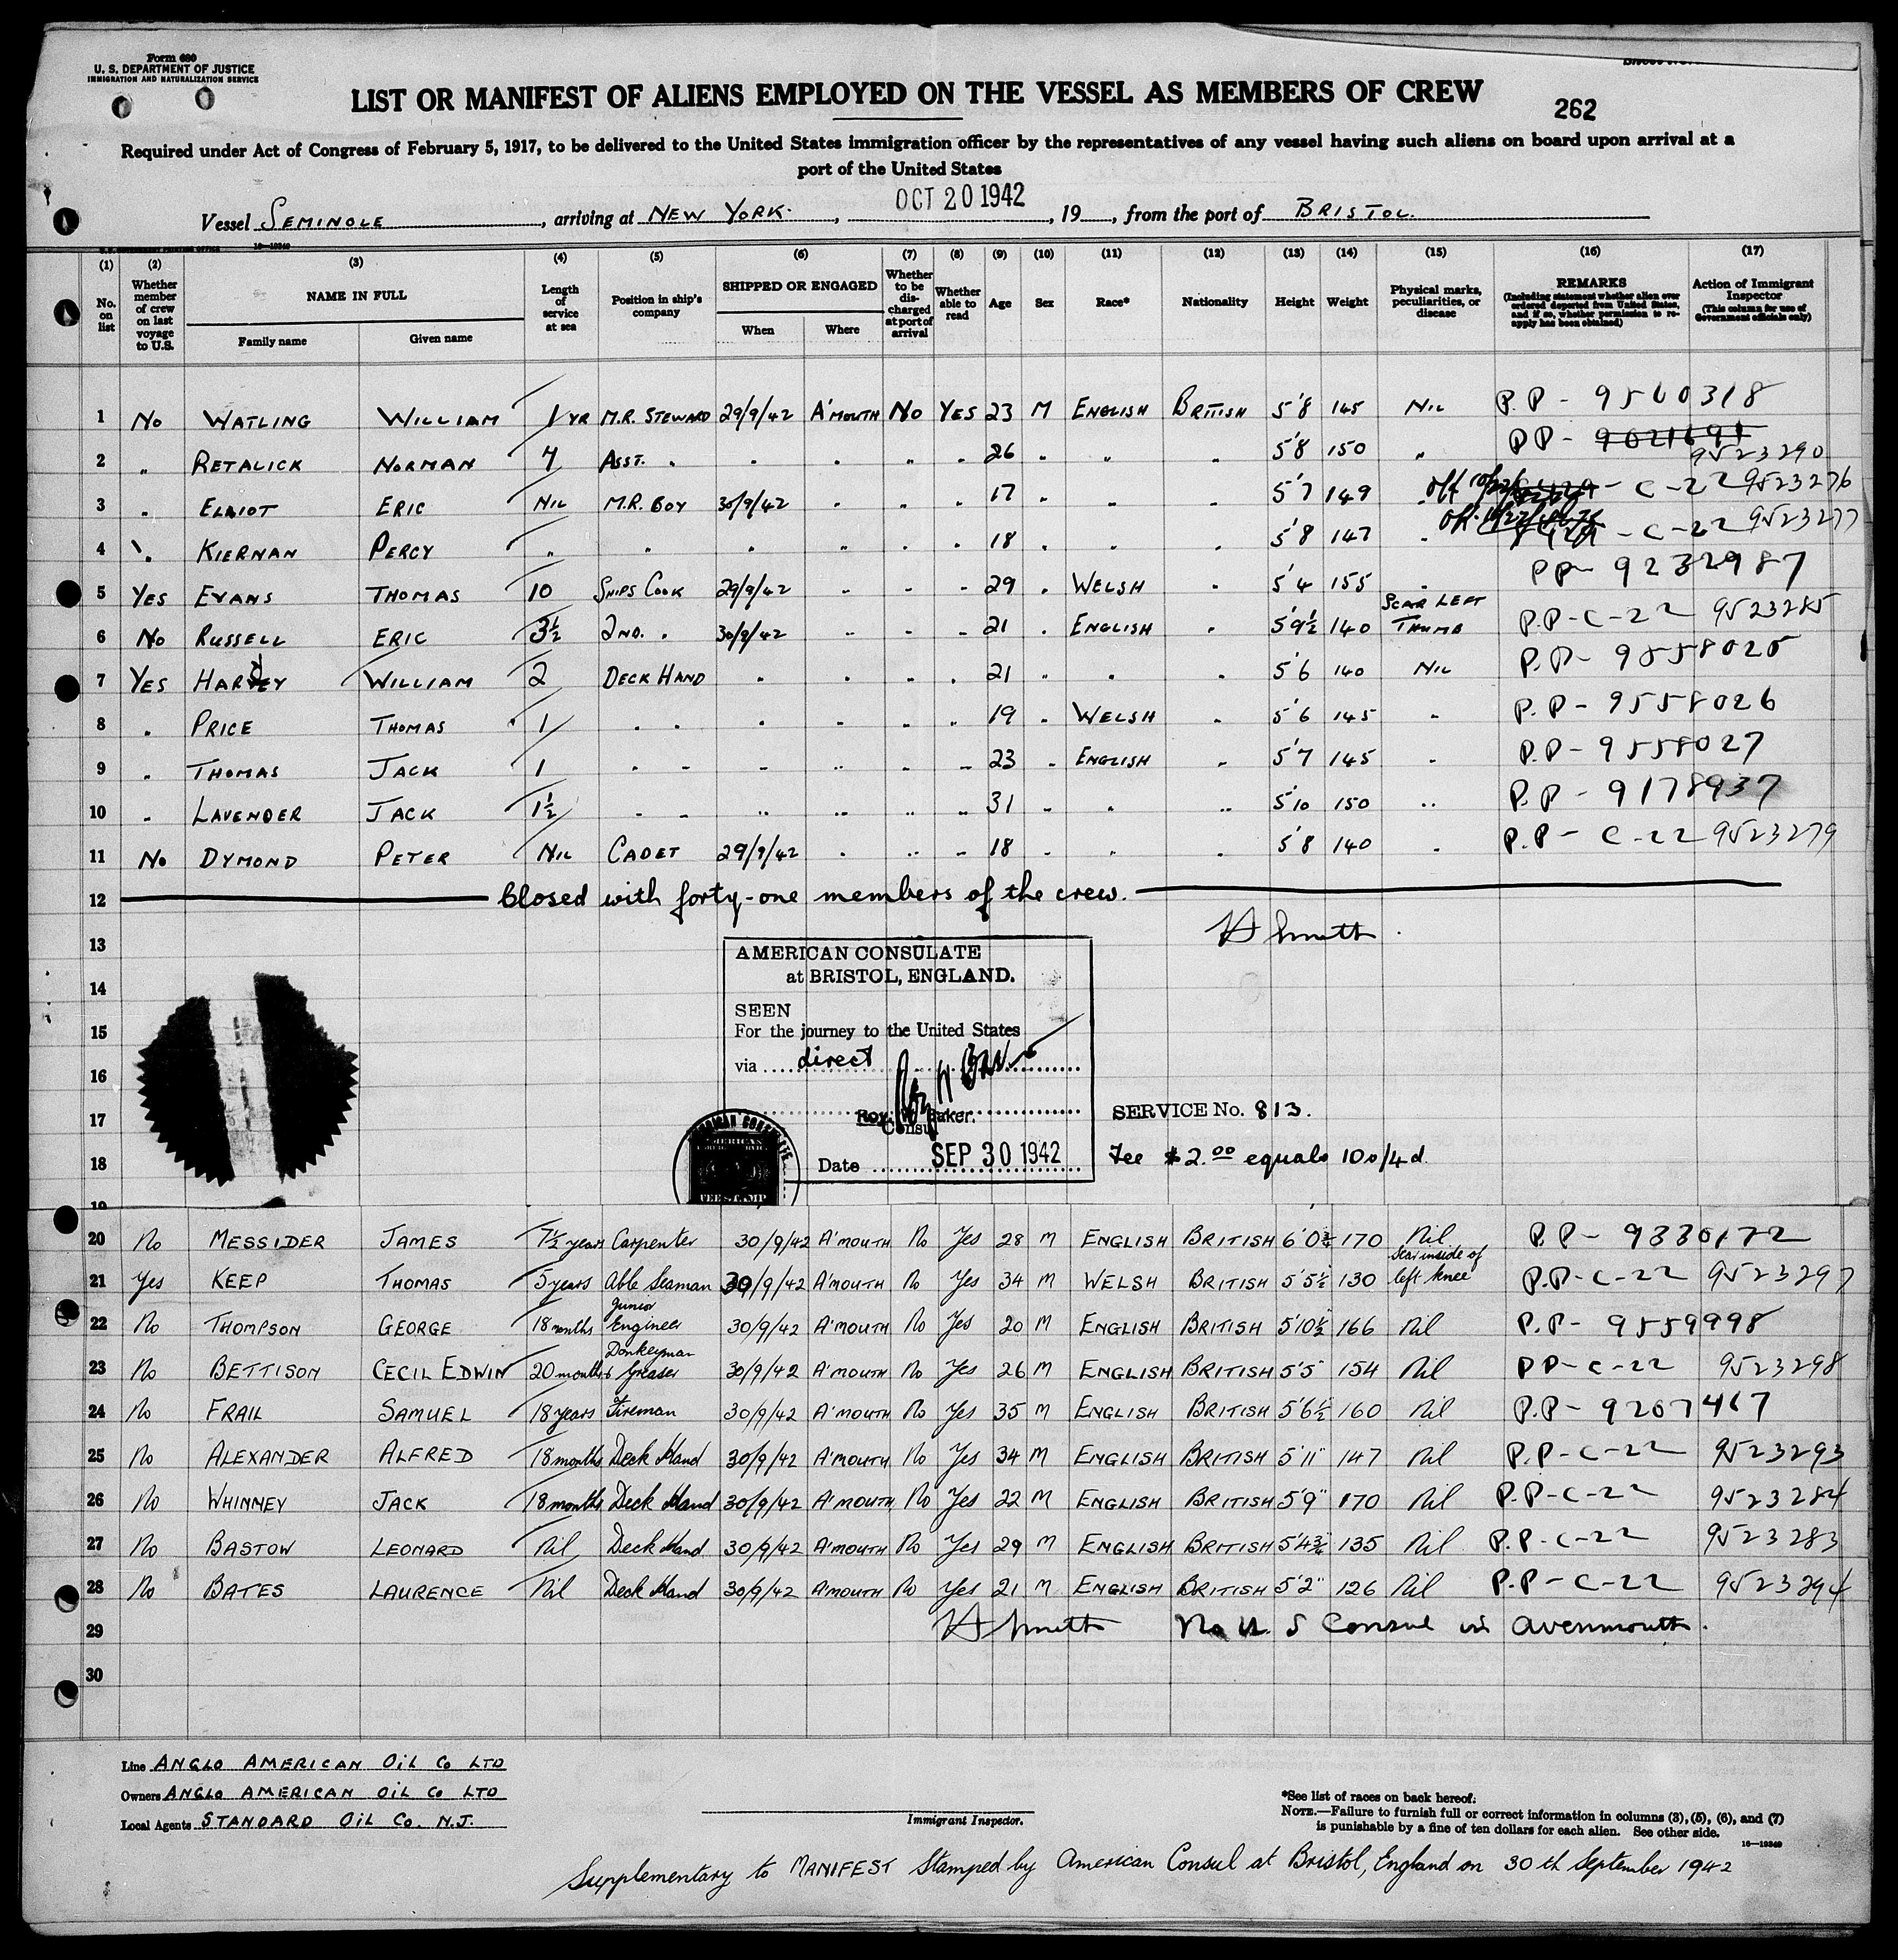 Form 680
U. S. DEPARTMENT OF JUSTICE
IMMIGRATION AND NATURALIZATION SERVICE
LIST OR MANIFEST OF ALIENS EMPLOYED ON THE VESSEL AS MEMBERS OF CREW
262
Required under Act of Congress of February 5, 1917, to be delivered to the United States immigration officer by the representatives of any vessel having such aliens on board upon arrival at a
port of the United States
Vessel SEMINOLE, arriving at NEW YORK., OCT 20 1942, 19__, from the port of BRISTOL.
(1) (2) (3) (4) (5) (6) (7) (8) (9) (10) (11) (12) (13) (14) (15) (16) (17)
No. on list
Whether member of crew on last voyage to U.S.
NAME IN FULL
Family name
Given name
Length of service at sea
Position in ship's company
SHIPPED OR ENGAGED
When
Where
Whether to be discharged at port of arrival
Whether able to read
Age
Sex
Race*
Nationality
Height
Weight
Physical marks, peculiarities, or disease
REMARKS
(Including statement whether alien ever ordered deported from United States, and if so, whether permission to re-apply has been obtained)
Action of Immigrant Inspector
(This column for use of Government officials only)
1 No WATLING WILLIAM 1 YR M.R. STEWARD 29/9/42 A'MOUTH NO YES 23 M ENGLISH BRITISH 5'8 145 NIL P.P - 9560318
2 " RETALICK NORMAN 4 ASST. " " " " " 26 " " " 5'8 150 " PP - 9021691 9523290
3 " ELLIOT ERIC NIL M.R. BOY 30/9/42 " " " 17 " " " 5'7 149 " C-22 9523276
4 " KIERNAN PERCY " " " " " " 18 " " " 5'8 147 " C-22 9523277
5 YES EVANS THOMAS 10 SHIPS COOK 29/9/42 " " " 29 " WELSH " 5'4 155 " PP- 9232987
6 No RUSSELL ERIC 3½ 2ND. " 30/9/42 " " " 21 " ENGLISH " 5'9½ 140 SCAR LEFT THUMB P.P-C-22 9523285
7 YES HARVEY WILLIAM 2 DECK HAND " " " " 21 " " " 5'6 140 NIL P.P- 9558025
8 " PRICE THOMAS 1 " " " " " " 19 " WELSH " 5'6 145 " P.P - 9558026
9 " THOMAS JACK 1 " " " " " " 23 " ENGLISH " 5'7 145 " P.P - 9558027
10 " LAVENDER JACK 1½ " " " " " " 31 " " " 5'10 150 " P.P - 9178937
11 No DYMOND PETER NIL CADET 29/9/42 " " " 18 " " " 5'8 140 " P.P - C-22 9523279
12 Closed with forty-one members of the crew.
13 H Smith
14
15
16
17
18
19
AMERICAN CONSULATE
at BRISTOL, ENGLAND.
SEEN
For the journey to the United States
via direct
Roy W Baker.
Consul
Date SEP 30 1942
AMERICAN CONSULATE
AMERICAN
FEE STAMP
SERVICE No. 813.
Fee $2.00 equals 10s/4d.
20 No MESSIDER JAMES 7½ years Carpenter 30/9/42 A'MOUTH No Yes 28 M ENGLISH BRITISH 6'0¾ 170 Nil P.P - 9330172
21 Yes KEEP THOMAS 5 years Able Seaman 30/9/42 A'MOUTH No Yes 34 M WELSH BRITISH 5'5½ 130 Scar inside of left knee P.P-C-22 9523297
22 No THOMPSON GEORGE 18 months Junior Engineer 30/9/42 A'MOUTH No Yes 20 M ENGLISH BRITISH 5'10½ 166 Nil P.P- 9559998
23 No BETTISON CECIL EDWIN 20 months Donkeyman & Greaser 30/9/42 A'MOUTH No Yes 26 M ENGLISH BRITISH 5'5" 154 Nil PP-C-22 9523298
24 No FRAIL SAMUEL 18 years Fireman 30/9/42 A'MOUTH No Yes 35 M ENGLISH BRITISH 5'6½ 160 Nil P.P- 9207467
25 No ALEXANDER ALFRED 18 months Deck Hand 30/9/42 A'MOUTH No Yes 34 M ENGLISH BRITISH 5'11" 147 Nil P.P-C-22 9523293
26 No WHINNEY JACK 18 months Deck Hand 30/9/42 A'MOUTH No Yes 22 M ENGLISH BRITISH 5'9" 170 Nil P.P-C-22 9523284
27 No BASTOW LEONARD Nil Deck Hand 30/9/42 A'MOUTH No Yes 29 M ENGLISH BRITISH 5'4¾ 135 Nil P.P-C-22 9523283
28 No BATES LAURENCE Nil Deck Hand 30/9/42 A'MOUTH No Yes 21 M ENGLISH BRITISH 5'2" 126 Nil P.P-C-22 9523294
29 H Smith No U. S Consul in Avonmouth.
30
Line ANGLO AMERICAN OIL Co LTD
Owners ANGLO AMERICAN OIL Co LTD
Local Agents STANDARD OIL Co. N.J.
Immigrant Inspector.
*See list of races on back hereof.
NOTE.—Failure to furnish full or correct information in columns (3), (5), (6), and (7)
is punishable by a fine of ten dollars for each alien. See other side.
16—19340
Supplementary to MANIFEST Stamped by American Consul at Bristol, England on 30th September 1942